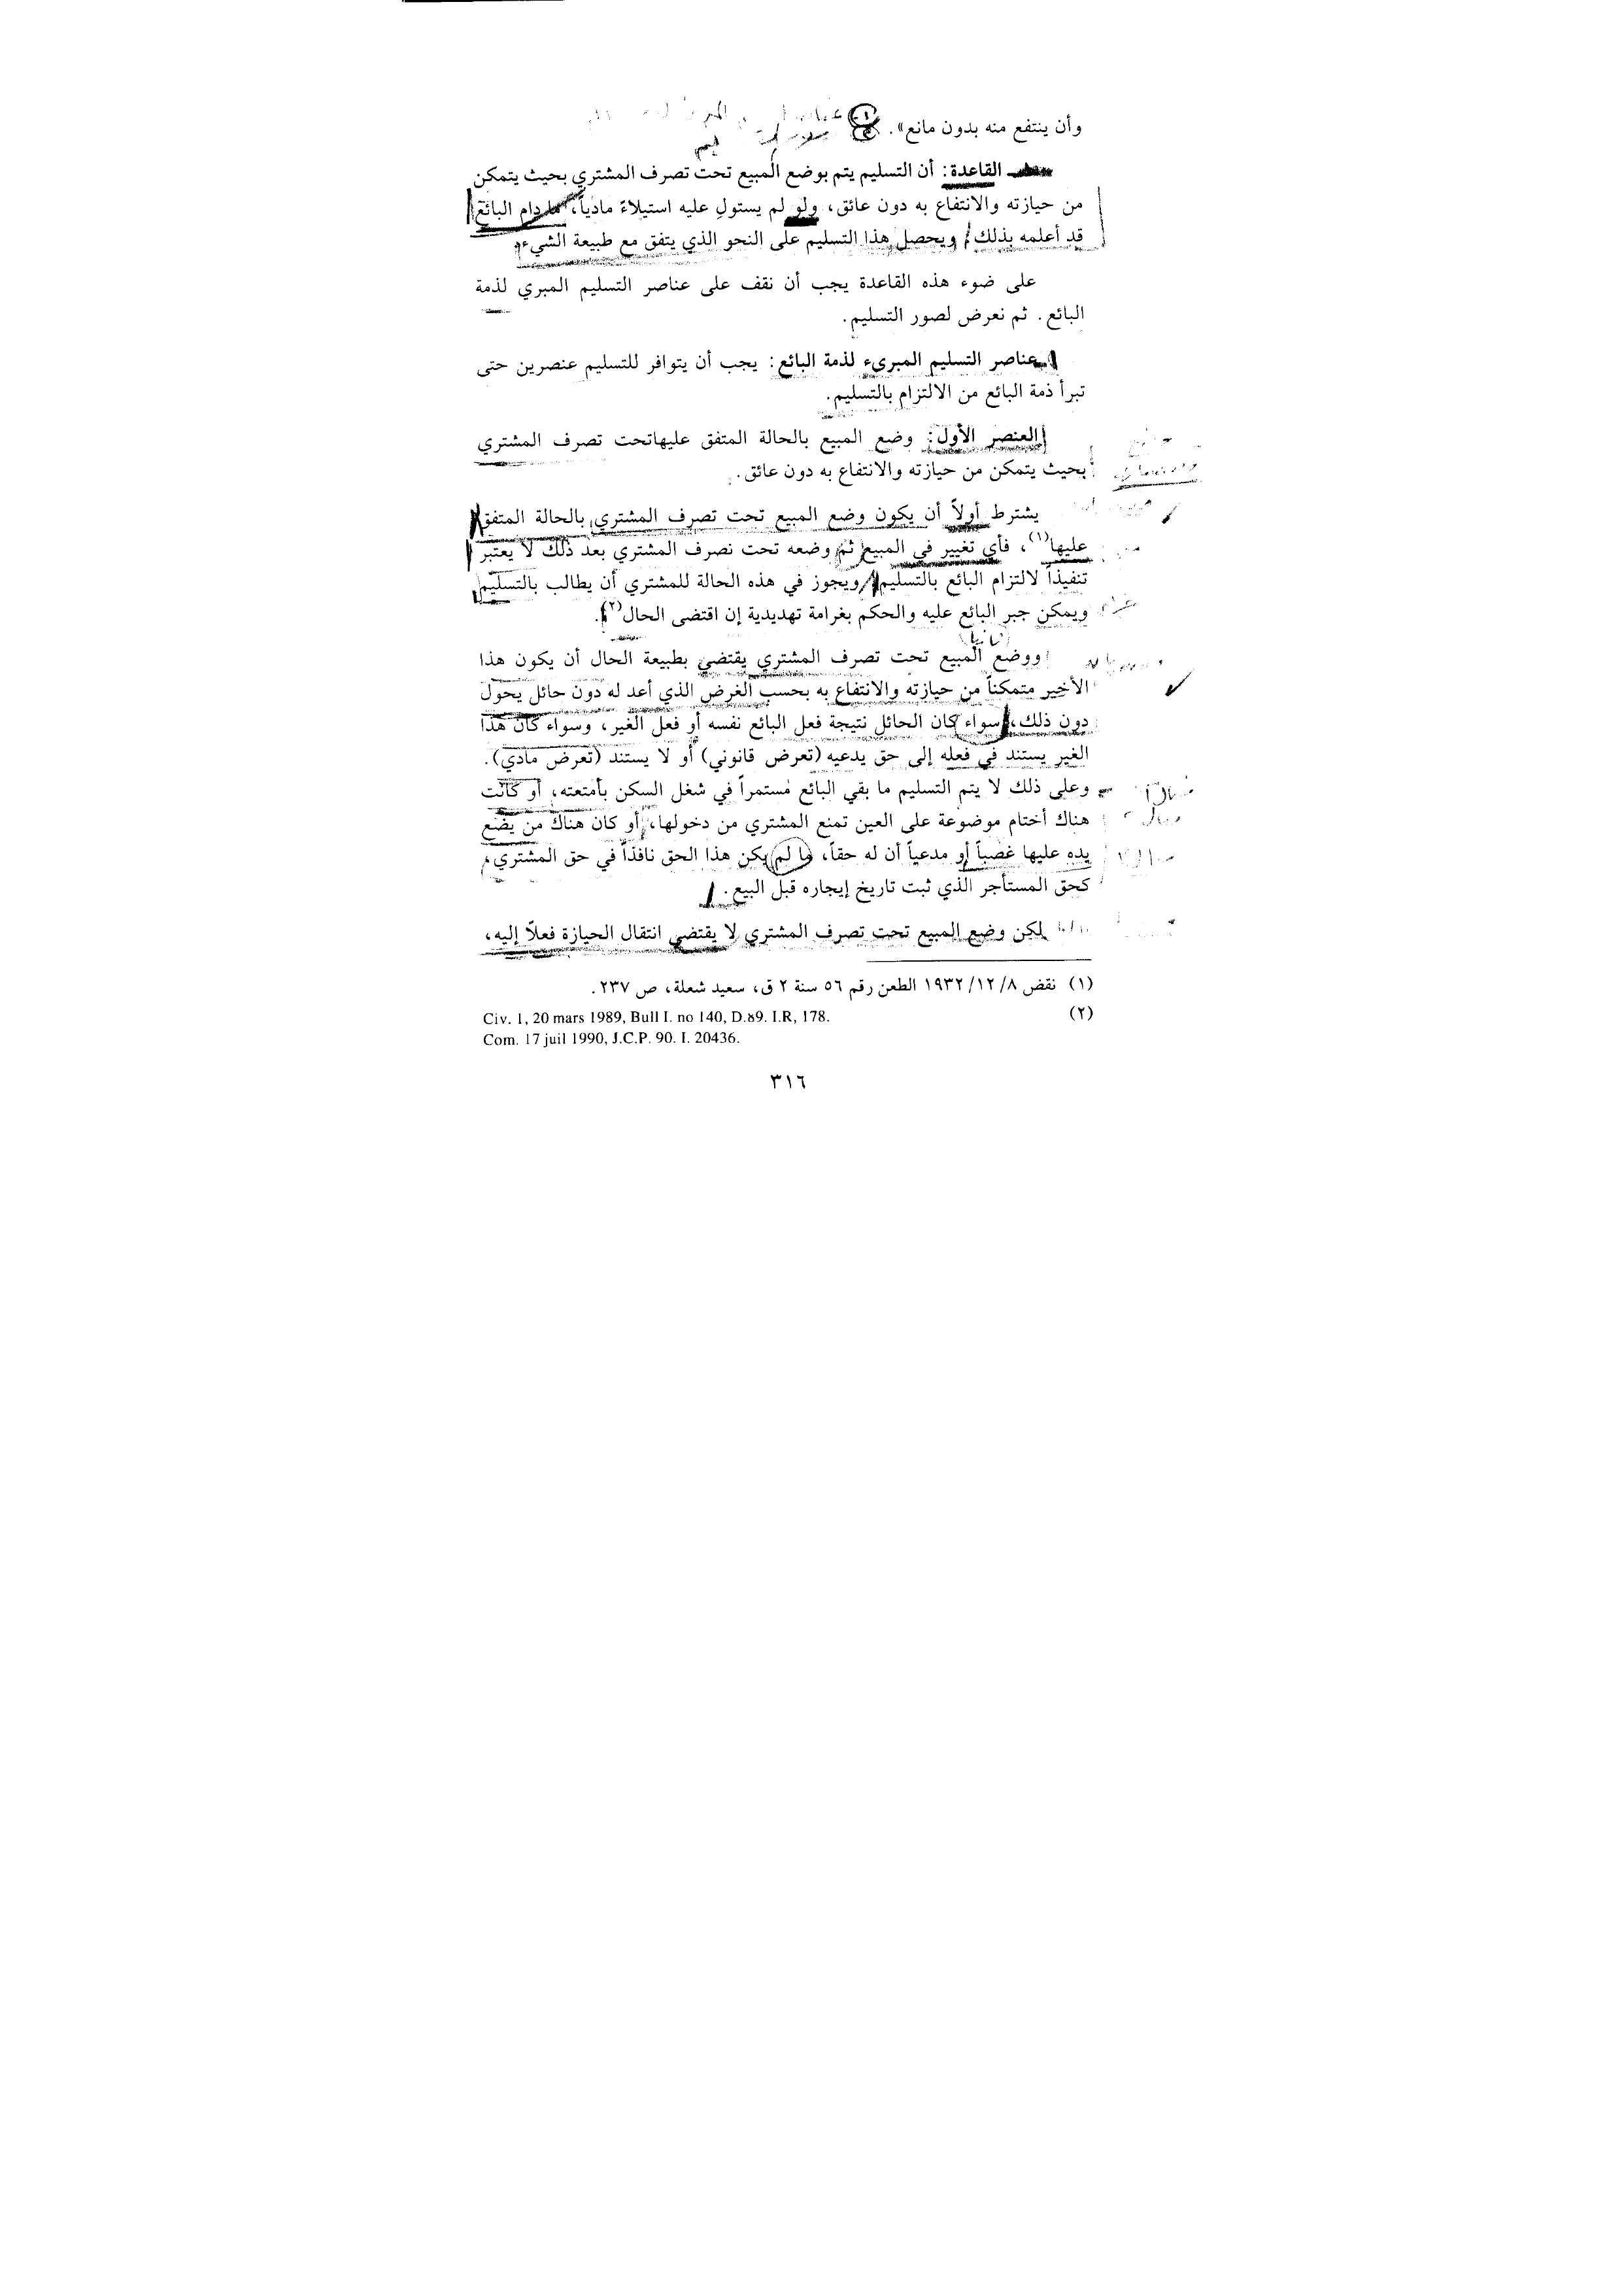 وأن ينتفع منه بدون مانع».
القاعدة: أن التسليم يتم بوضع المبيع تحت تصرف المشتري بحيث يتمكن
من حيازته والانتفاع به دون عائق، ولو لم يستولِ عليه استيلاءً مادياً، ما دام البائع
قد أعلمه بذلك، ويحصل هذا التسليم على النحو الذي يتفق مع طبيعة الشيء
على ضوء هذه القاعدة يجب أن نقف على عناصر التسليم المبري لذمة
البائع. ثم نعرض لصور التسليم.
عناصر التسليم المبريء لذمة البائع: يجب أن يتوافر للتسليم عنصرين حتى
تبرأ ذمة البائع من الالتزام بالتسليم.
العنصر الأول: وضع المبيع بالحالة المتفق عليهاتحت تصرف المشتري
بحيث يتمكن من حيازته والانتفاع به دون عائق.
يشترط أولاً أن يكون وضع المبيع تحت تصرف المشتري بالحالة المتفق
عليها(١)، فأي تغيير في المبيع ثم وضعه تحت نصرف المشتري بعد ذلك لا يعتبر
تنفيذاً لالتزام البائع بالتسليم، ويجوز في هذه الحالة للمشتري أن يطالب بالتسليم
ويمكن جبر البائع عليه والحكم بغرامة تهديدية إن اقتضى الحال(٢).
ثانيا
ووضع المبيع تحت تصرف المشتري يقتضي بطبيعة الحال أن يكون هذا
الأخير متمكناً من حيازته والانتفاع به بحسب الغرض الذي أعد له دون حائل يحول
دون ذلك، سواء كان الحائل نتيجة فعل البائع نفسه أو فعل الغير، وسواء كان هذا
الغير يستند في فعله إلى حق يدعيه (تعرض قانوني) أو لا يستند (تعرض مادي).
وعلى ذلك لا يتم التسليم ما بقي البائع مستمراً في شغل السكن بأمتعته، أو كانت
هناك أختام موضوعة على العين تمنع المشتري من دخولها، أو كان هناك من يضع
يده عليها غصباً أو مدعياً أن له حقاً، ما لم يكن هذا الحق نافذاً في حق المشتري
كحق المستأجر الذي ثبت تاريخ إيجاره قبل البيع.
لكن وضع المبيع تحت تصرف المشتري لا يقتضي انتقال الحيازة فعلاً إليه،
(١) نقض ٨/ ١٢/ ١٩٣٢ الطعن رقم ٥٦ سنة ٢ ق، سعيد شعلة، ص ٢٣٧.
(٢) Civ. 1, 20 mars 1989, Bull I. no 140, D.89. I.R, 178.
Com. 17 juil 1990, J.C.P. 90. I. 20436.
٣١٦